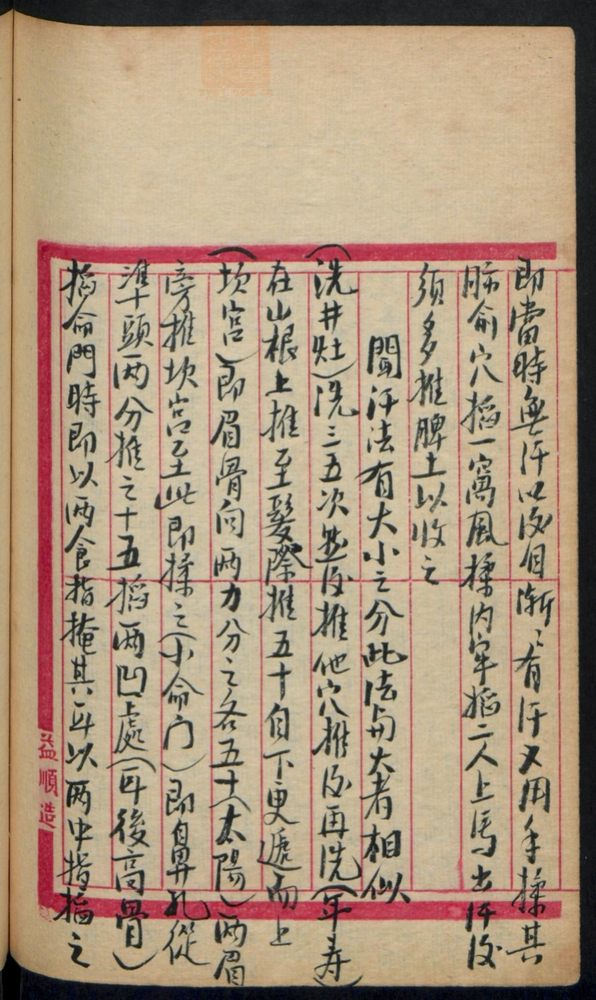 即當時無汗以後自漸々有汗又用手揉其
肺俞穴掐一窩風揉內牢掐二人上馬出汗後
須多推脾土以收之
聞汗法有大小之分此法与大者相似
(洗井灶)洗三五次然後推他穴推後再洗(年寿)
在山根上推至髮際推五十自下更遞而上
(坎宮)即眉骨向兩方分之各五十(太陽)兩眉
旁推坎宮至此即揉之(小命门)即鼻孔從
準頭兩分推之十五掐兩凹處(耳後高骨)
掐命門時即以兩食指掩其耳以兩中指掐之
益順造